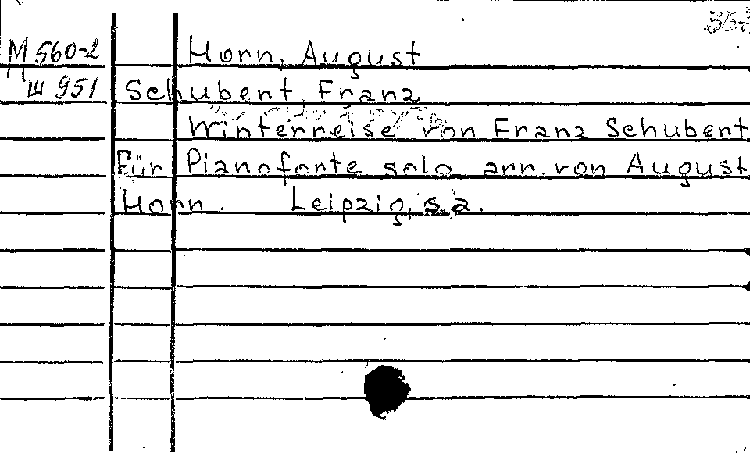 M 560-2 Horn, August
Ш 951 Schubert, Franz
Winterreise von Franz Schubert
Für Pianoforte solo arr. von August
Horn. Leipzig, s.a.